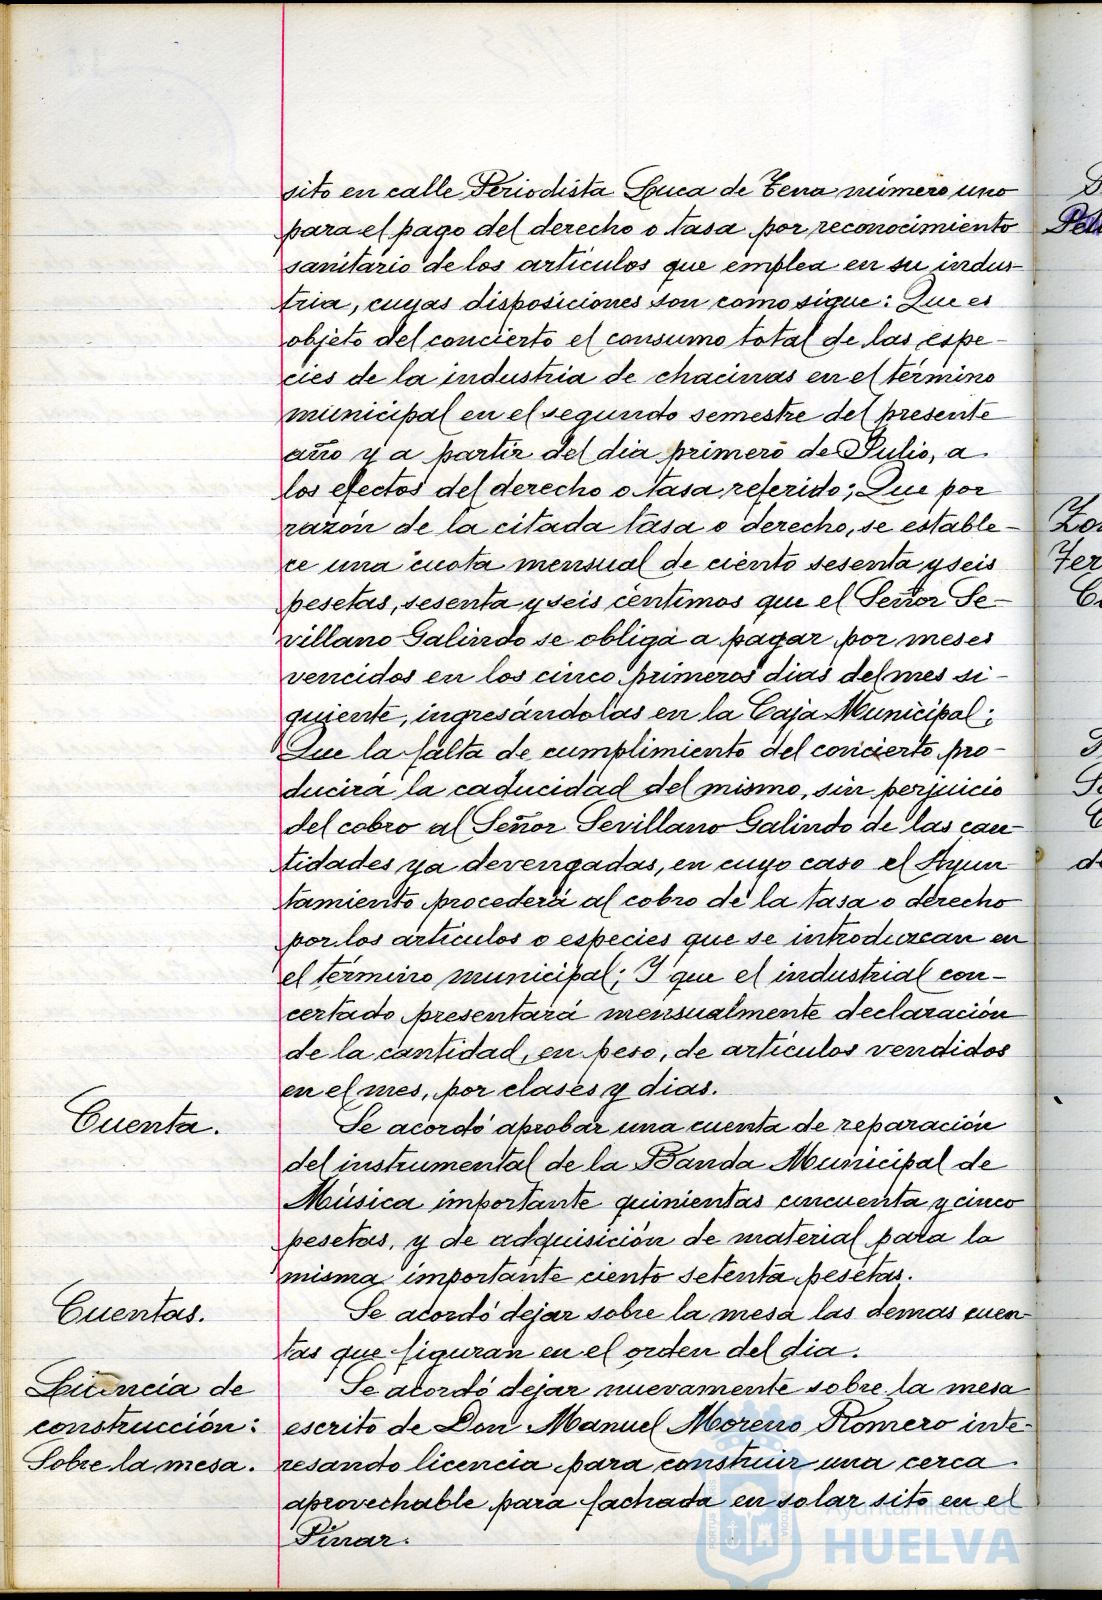 sito en calle Periodista Luca de Tena número uno
para el pago del derecho o tasa por reconocimiento
sanitario de los artículos que emplea en su indus-
tria, cuyas disposiciones son como sigue: Que es
objeto del concierto el consumo total de las espe-
cies de la industria de chacinas en el término
municipal en el segundo semestre del presente
año y a partir del dia primero de Julio, a
los efectos del derecho o tasa referido; Que por
razón de la citada tasa o derecho, se estable-
ce una cuota mensual de ciento sesenta y seis
pesetas, sesenta y seis céntimos que el Señor Se-
villano Galindo se obliga a pagar por meses
vencidos en los cinco primeros dias del mes si-
guiente, ingresándolas en la Caja Municipal;
Que la falta de cumplimiento del concierto pro-
ducirá la caducidad del mismo, sin perjuicio
del cobro al Señor Sevillano Galindo de las can-
tidades ya devengadas, en cuyo caso el Ayun-
tamiento procederá al cobro de la tasa o derecho
por los artículos o especies que se introduzcan en
el término municipal; Y que el industrial con-
certado presentará mensualmente declaración
de la cantidad, en peso, de artículos vendidos
en el mes, por clases y dias.
Cuenta.
Se acordó aprobar una cuenta de reparación
del instrumental de la Banda Municipal de
Música importante quinientas cincuenta y cinco
pesetas, y de adquisición de material para la
misma importante ciento setenta pesetas.
Cuentas.
Se acordó dejar sobre la mesa las demas cuen-
tas que figuran en el orden del dia.
Licencia de
construcción:
Sobre la mesa.
Se acordó dejar nuevamente sobre la mesa
escrito de Don Manuel Moreno Romero inte-
resando licencia para construir una cerca
aprovechable para fachada en solar sito en el
Pinar.
Ayuntamiento de
HUELVA